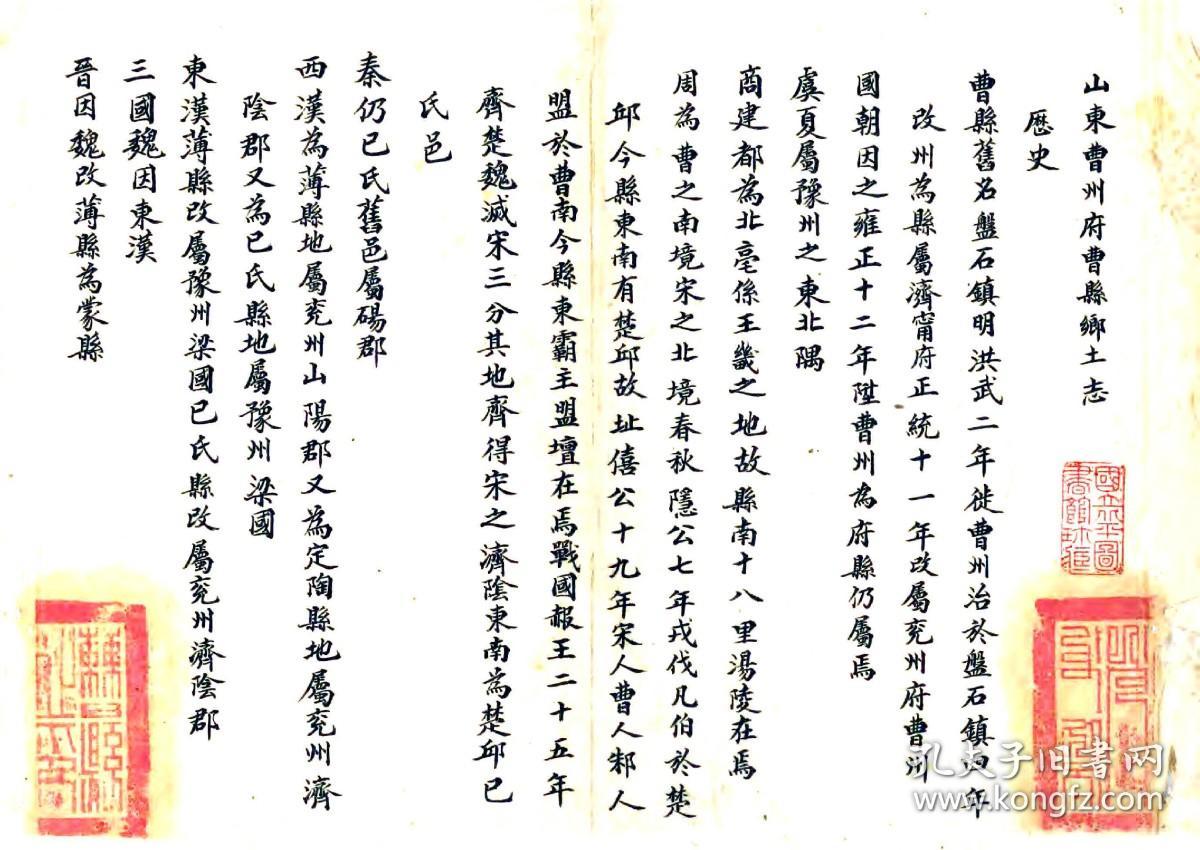 山東曹州府曹縣鄉土志
歷史
曹縣舊名盤石鎮明洪武二年徙曹州治於盤石鎮四年
改州為縣屬濟甯府正統十一年改屬兖州府曹州
國朝因之雍正十二年陞曹州為府縣仍屬焉
虞夏屬豫州之東北隅
商建都為北亳係王畿之地故縣南十八里湯陵在焉
周為曹之南境宋之北境春秋隱公七年戎伐凡伯於楚
邱今縣東南有楚邱故址僖公十九年宋人曹人邾人
盟於曹南今縣東霸主盟壇在焉戰國赧王二十五年
齊楚魏滅宋三分其地齊得宋之濟陰東南為楚邱已
氏邑
秦仍已氏舊邑屬碭郡
西漢為薄縣地屬兖州山陽郡又為定陶縣地屬兖州濟
陰郡又為已氏縣地屬豫州梁國
東漢薄縣改屬豫州梁國已氏縣改屬兖州濟陰郡
三國魏因東漢
晉因魏改薄縣為蒙縣
孔夫子旧书网
www.kongfz.com